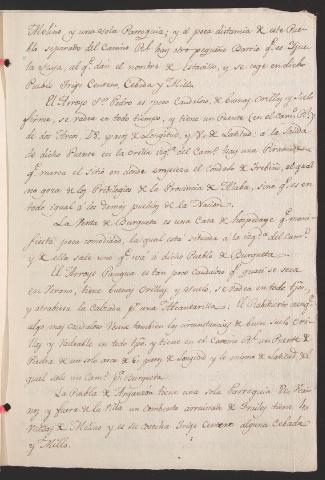 Molino, y una sola Parroquia; y a poca distancia de este Pue-
blo separado del Camino Rl. hay otro pequeño Barrio qe. es Igle-
sia Suya, al qe. dan el nombre de Estavillo, y se coge en dicho
Pueblo Trigo Centeno Cebada y Millo.
El Arroyo Sn. Pedro es poco Caudaloso, de buenas orillas y suelo
firme, se vadea en todo tiempo, y tiene un Puente (en el Camo. Rl.)
de dos Arcos, 18. pasos de Longitud, y 8. de Latitud: a la Salida
de dicho Puente en la orilla izqda. del Camo. hay una Piramide
qe. marca el Sitio en donde empieza el Condado de Treviño, el qual
no goza de los Privilegios de la Provincia de Alaba, sino qe. es en
todo igual a los demas pueblos de la Nacion.
La Venta de Burgueta es una Casa de hospedage qe. mani-
fiesta poca comodidad, la qual está situada a la izqda. del Camo.
y de ella sale uno qe. va a dicho Pueblo de Burgueta.
El Arroyo es tan poco Caudaloso qe. quasi se seca
en Verano, tiene buenas Orillas, y Suelo, se vadea en todo tpo.
y atrabiesa la Calzada pr. una Alcantarilla: El aunqe.
algo mas Caudaloso tiene tambien las circunstancias de buen Suelo Ori-
llas y Vadeable en todo tpo. y tiene en el Camino Rl. un Puente de
Piedra de un solo arco de 6. pasos de Longitud y lo mismo de Latitud del
qual sale un Camo. pa. Burgueta.
La Puebla de Arganzon tiene una sola Parroquia
y fuera de la Villa un Combento arruinado de Frailes tiene
de Molino y es su cosecha Trigo Centeno alguna Cebada
y Millo.